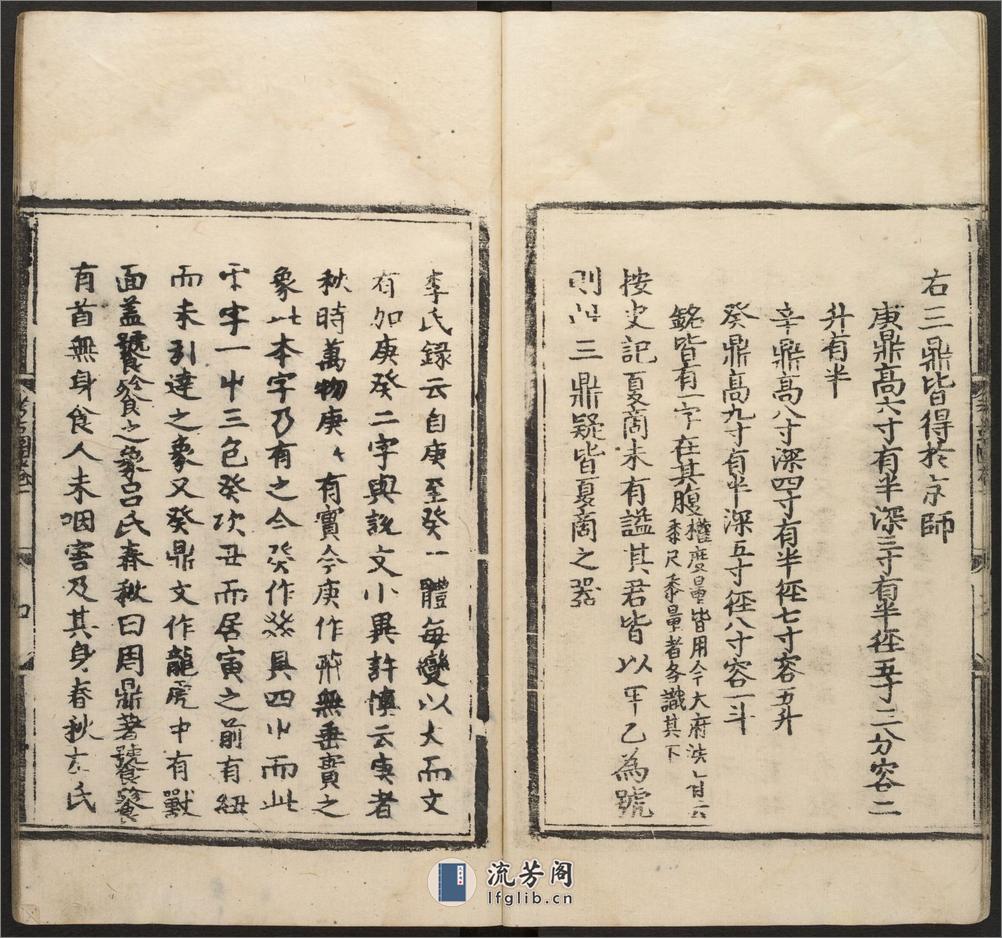 右三鼎皆得於京師
庚鼎高六寸有半深三寸有半徑五寸二八分容二
升有半
辛鼎高八寸深四寸有半徑七寸容五升
癸鼎高九寸有半深五寸徑八寸容一斗
銘皆有一字在其腹權度量皆用今大府
黍尺黍量者各識其下
按史記夏商未有謚其君皆以甲乙為號
則此三鼎疑皆夏商之器
李氏錄云自庚至癸一體每變以大而文
有加庚癸二字與說文小異許慎云庚者
秋時萬物庚〻有實今庚作無垂實之
象此本字乃有之今癸作具四屮而此
字一屮三包癸次丑而居寅之前有紐
而未引達之象又癸鼎文作龍虎中有獸
面蓋饕餮之象呂氏春秋曰周鼎著饕餮
有首無身食人未咽害及其身春秋左氏
考古圖卷一
流芳阁
lfglib.cn